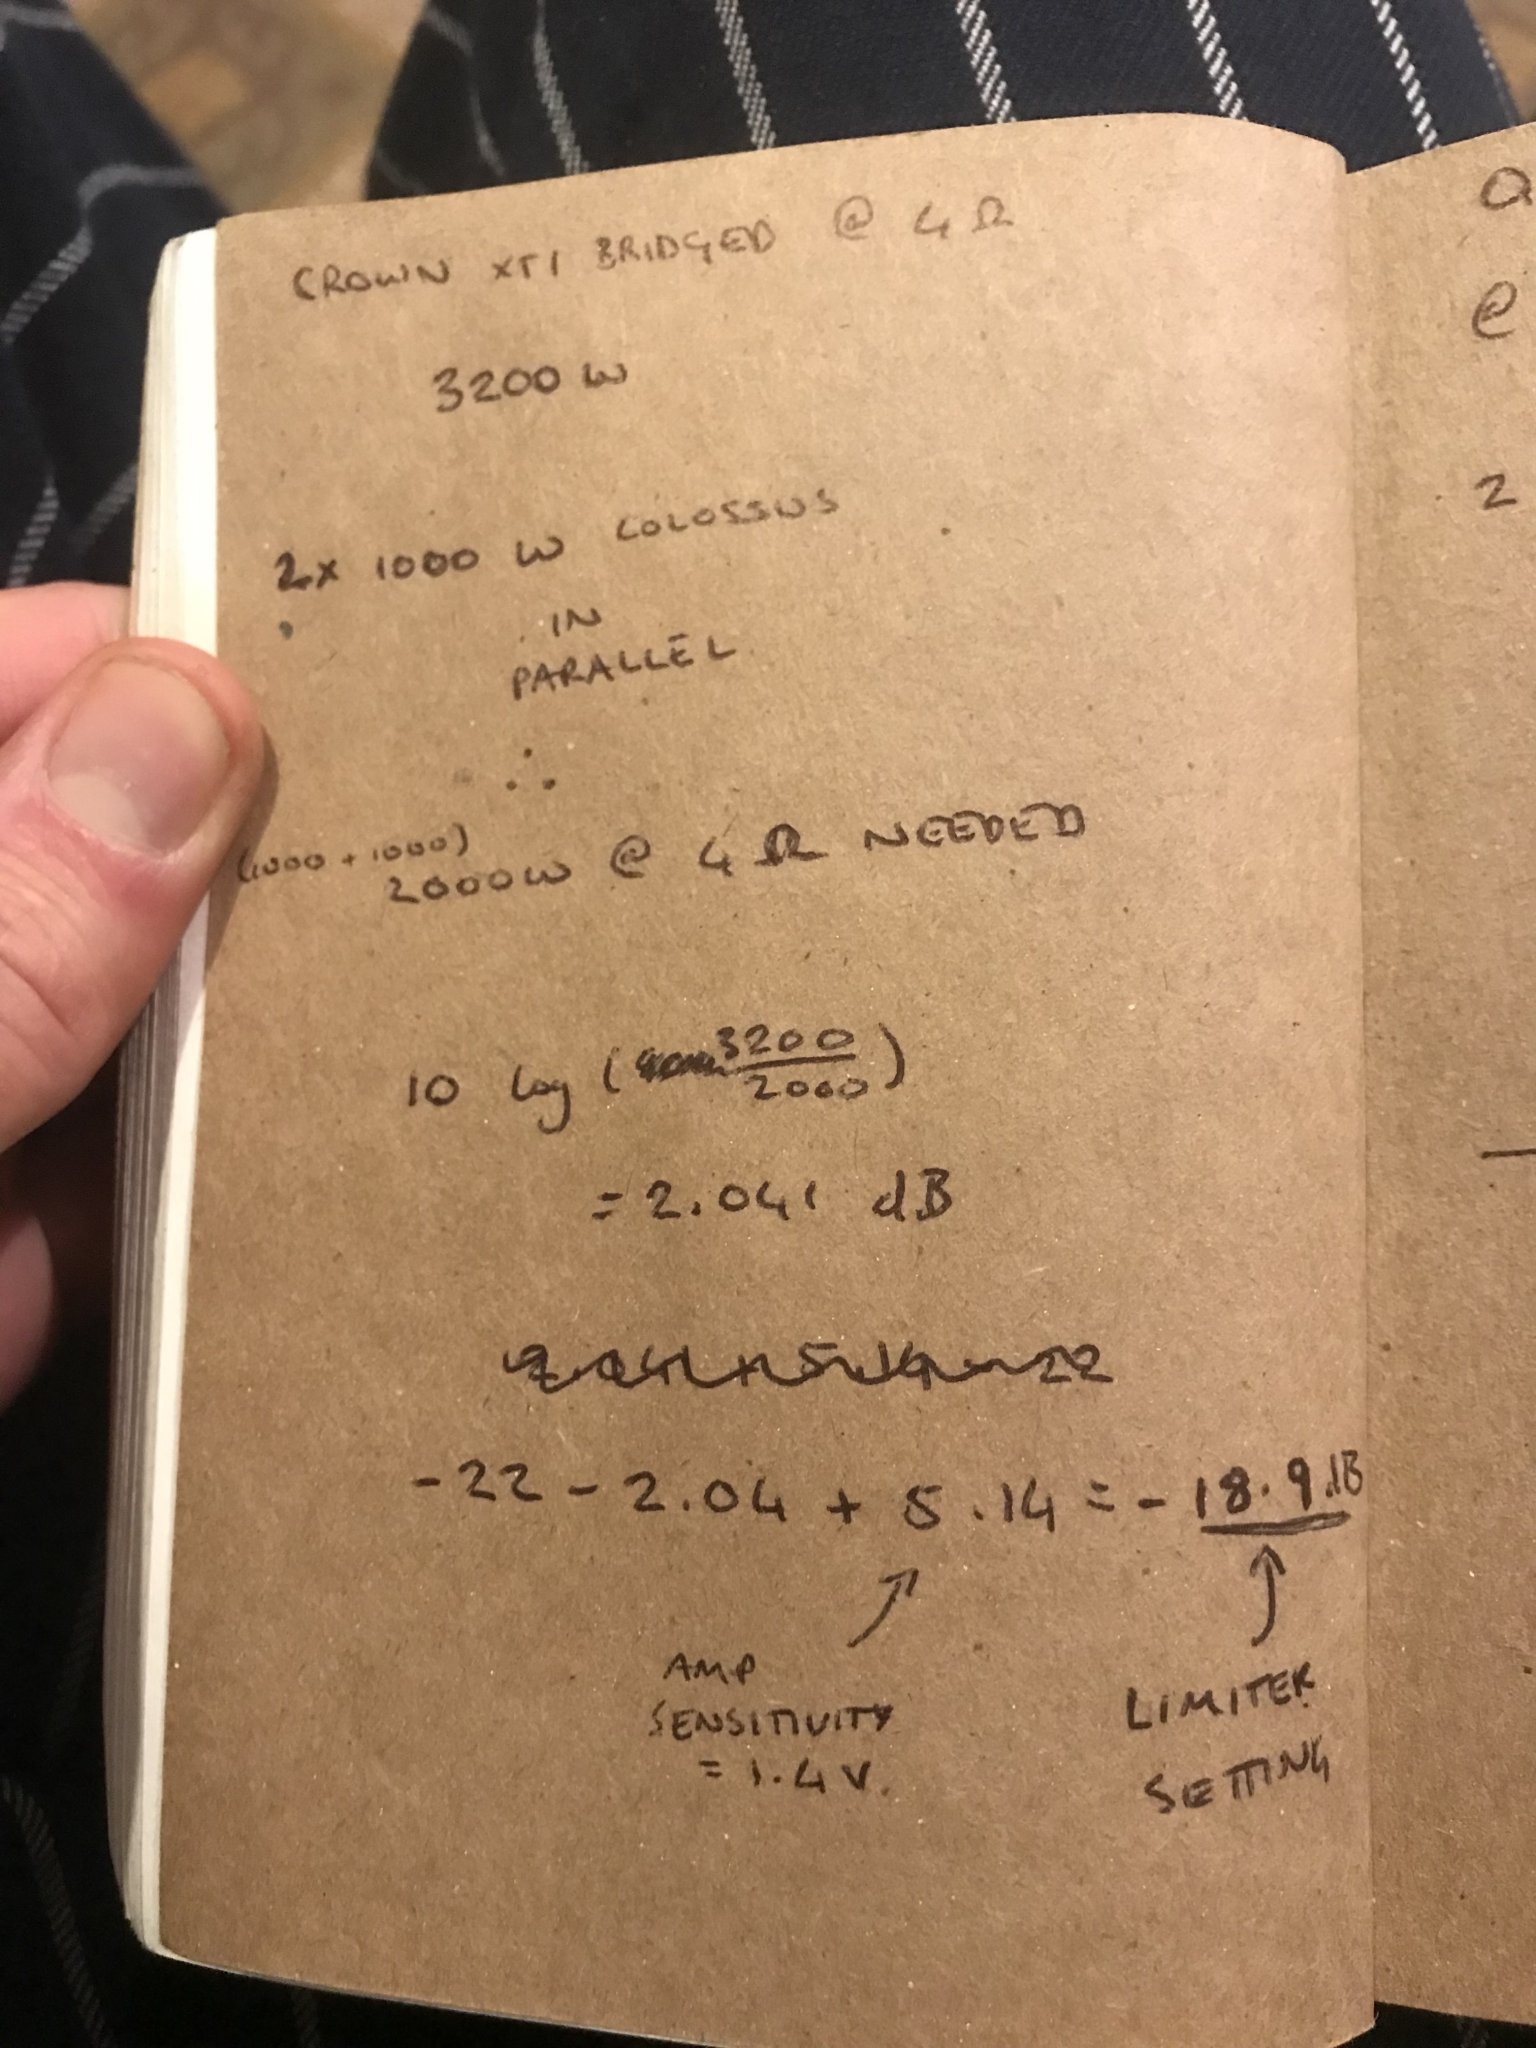 CROWN XTI BRIDGED @ 4 Ω
3200 W
2x 1000 W COLOSSUS
IN
PARALLEL
∴
(1000 + 1000)
2000W @ 4 Ω NEEDED
10 log (3200/2000)
= 2.041 dB
-22 - 2.04 + 5.14 = - 18.9 dB
AMP
SENSITIVITY
= 1.4 V.
LIMITER
SETTING
a
@
2